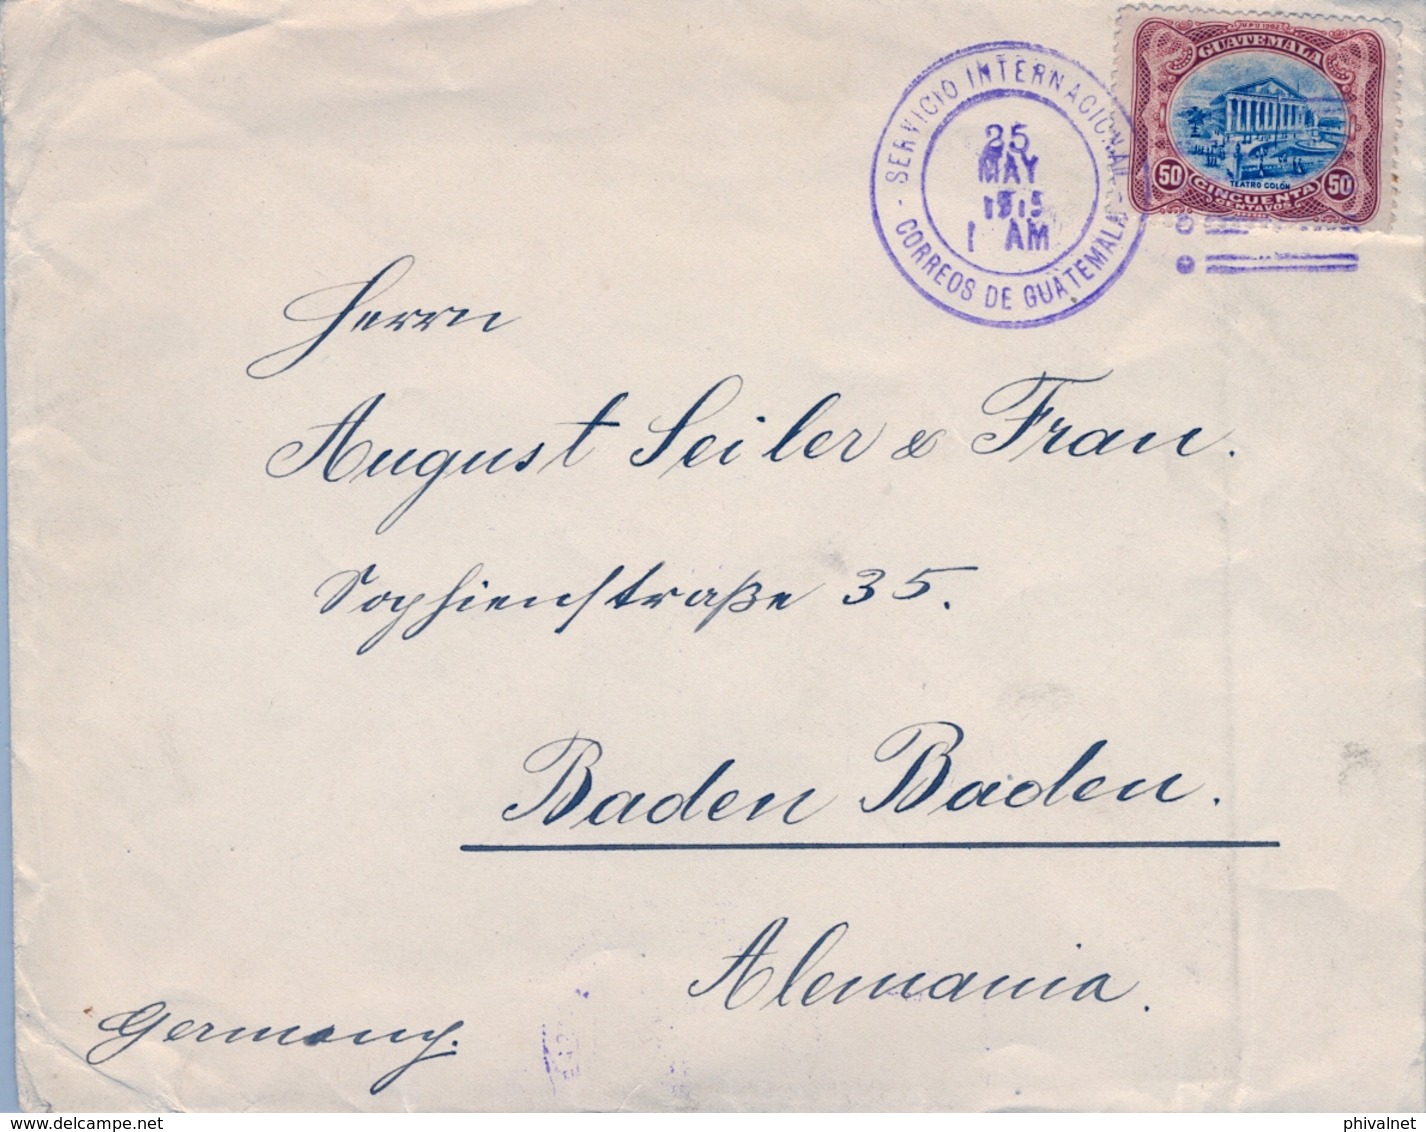 U.P.U. 1902
GUATEMALA
TEATRO COLÓN
50 CINCUENTA 50
CENTAVOS
SERVICIO INTERNACIONAL
25
MAY
1915
1 AM
CORREOS DE GUATEMALA
Herrn
August Seiler & Frau.
Sophienstraße 35.
Baden Baden.
Alemania.
Germany.
www.delcampe.net
phivalnet